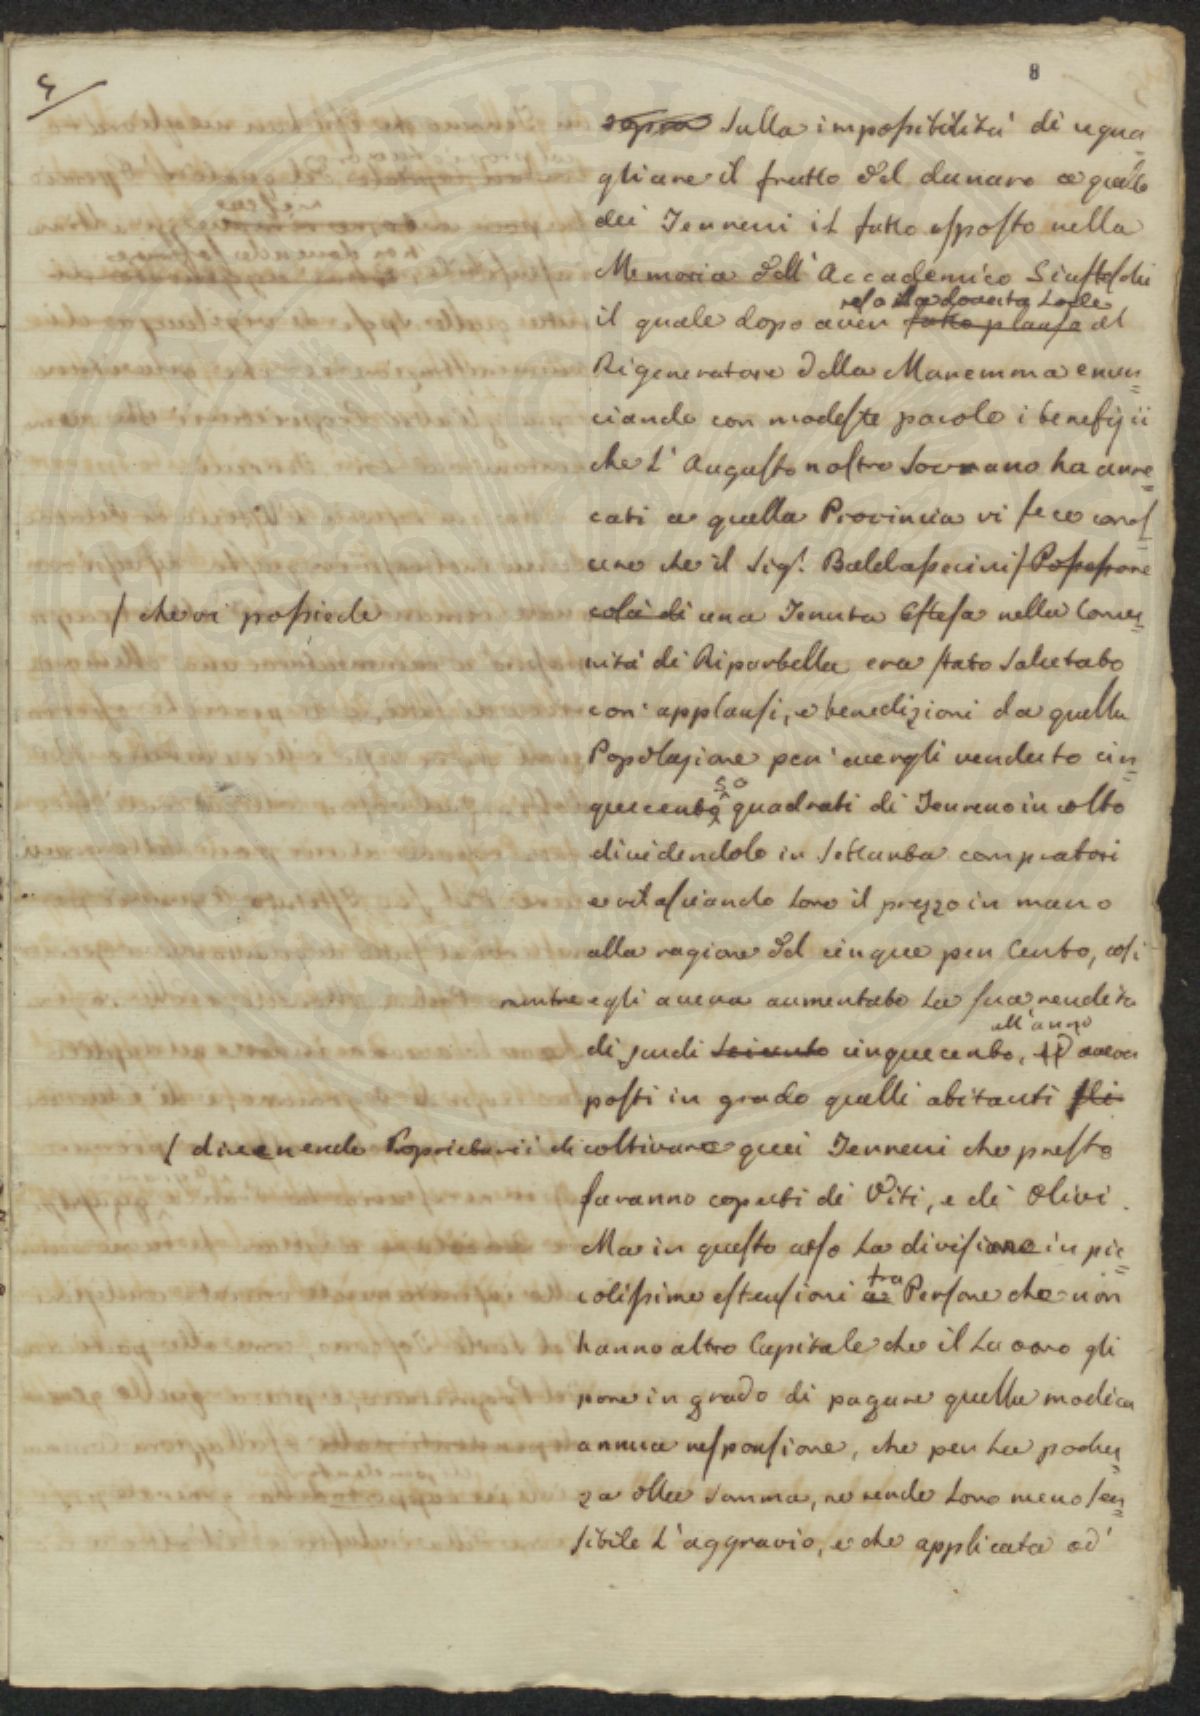 4
8
sopra sulla impossibilità di ugua=
gliare il frutto del danaro a quello
dei Terreni il fatto esposto nella
Memoria dell' Accademico
reso la dovuta Lode
il quale dopo aver fatto plauso al
Rigeneratore della Maremma enun=
ciando con modeste parole i benefizii
che l' Augusto nostro Sovrano ha arre=
cati a quella Provincia vi fece conos=
cere che il Sig.r Baldasserini / Possessore
/ che vi possiede
colà di una Tenuta Estesa nella Comu=
nità di Riparbella era stato salutato
con' applausi, e benedizioni da quella
Popolazione per' avergli venduto cin=
50
quecento quadrati di Terreno incolto
dividendolo in settanta compratori
e rilasciando loro il prezzo in mano
alla ragione del cinque per Cento, così
mentre egli aveva aumentato la sua rendita
all' anno
di scudi seicento cinquecento, aveva
posti in grado quelli abitanti
/ divenendo Proprietarii di coltivare quei Terreni che presto
saranno coperti di Viti, e di Olivi.
Ma in questo caso la divisione in pic=
tra
colissime estensioni a Persone che non
hanno altro Capitale che il Lavoro gli
pone in grado di pagare quella modica
annua responsione, che per la pochez=
za della somma, ne rende loro meno sen=
sibile l' aggravio, e che applicata ad'